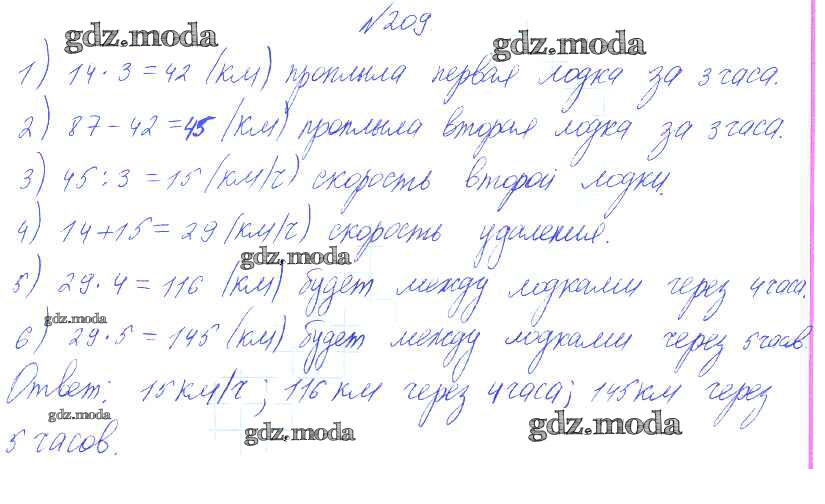 №209
gdz.moda
gdz.moda
1) 14 · 3 = 42 (км) проплыла первая лодка за 3 часа.
2) 87 – 42 = 45 (км) проплыла вторая лодка за 3 часа.
3) 45 : 3 = 15 (км/ч) скорость второй лодки.
4) 14 + 15 = 29 (км/ч) скорость удаления.
gdz.moda
5) 29 · 4 = 116 (км) будет между лодками через 4 часа.
gdz.moda
6) 29 · 5 = 145 (км) будет между лодками через 5 часов.
Ответ: 15 км/ч; 116 км через 4 часа; 145 км через
gdz.moda
5 часов.
gdz.moda
gdz.moda